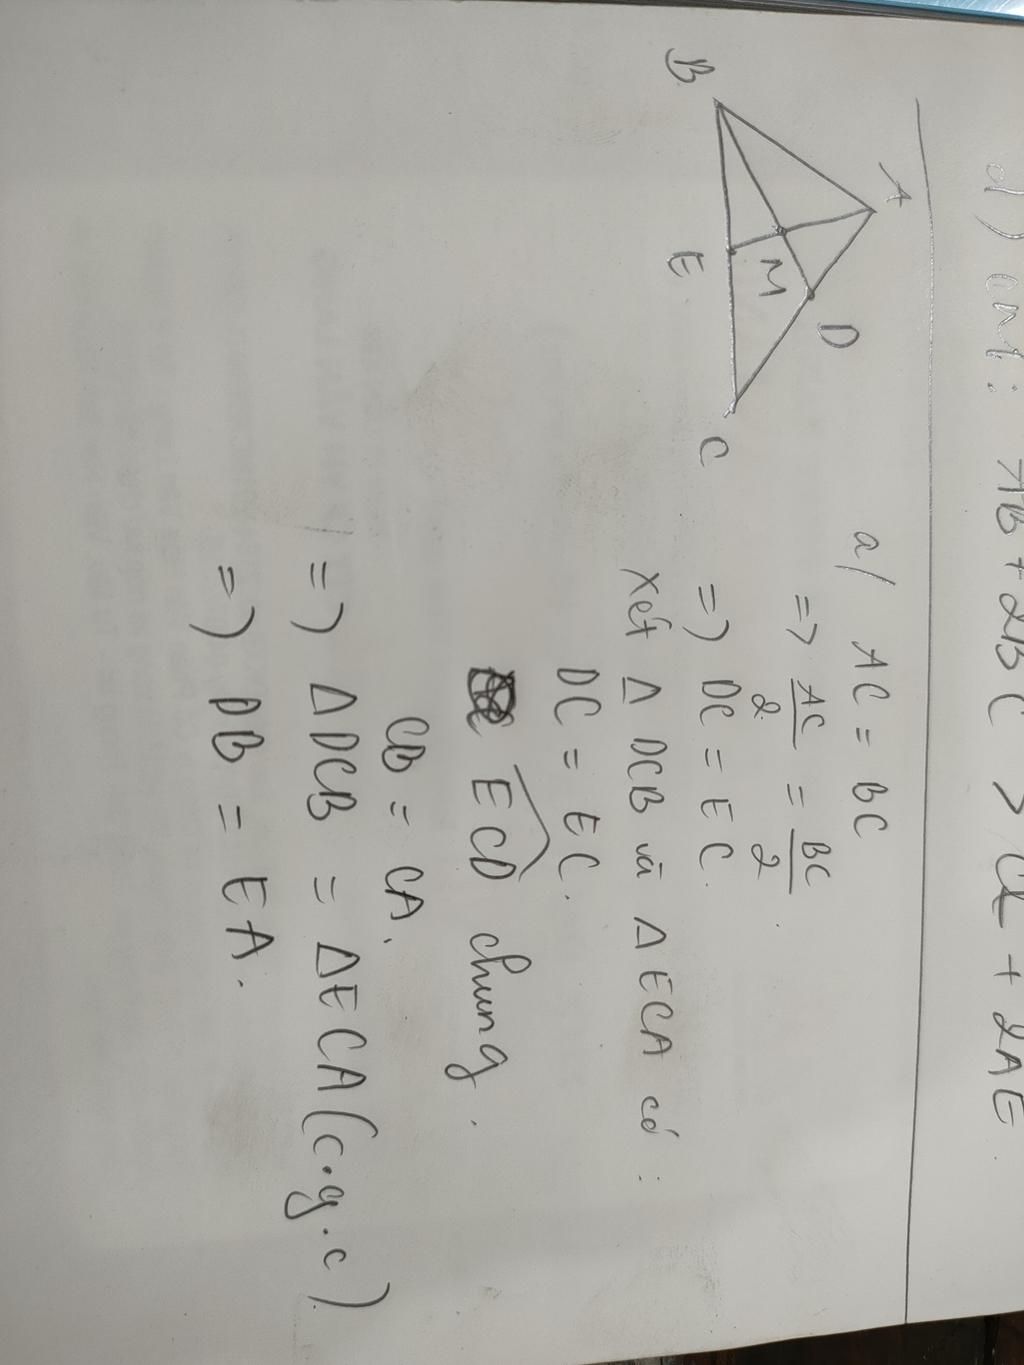 d) CM: AB + 2BC > CE + 2AE.
A
B
C
D
E
M
a/ AC = BC
=> AC/2 = BC/2.
=> DC = EC.
Xét Δ DCB và Δ ECA có:
DC = EC.
ECD chung.
CB = CA.
=> Δ DCB = Δ ECA (c.g.c).
=> DB = EA.